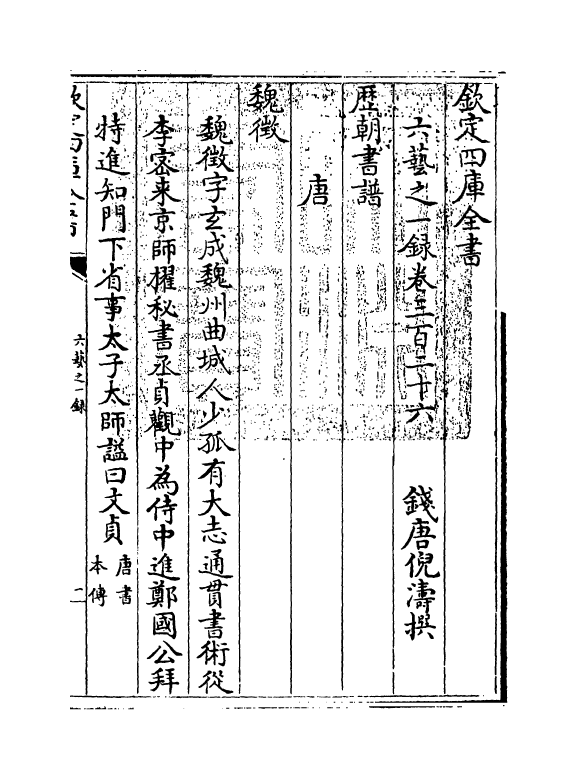 欽定四庫全書
六藝之一録卷三百二十六
錢唐倪濤撰
歴朝書譜
唐
魏徵
魏徵字玄成魏州曲城人少孤有大志通貫書術從
李密来京師擢秘書丞貞觀中為侍中進鄭國公拜
特進知門下省事太子太師謚曰文貞唐書本傳
六藝之一録